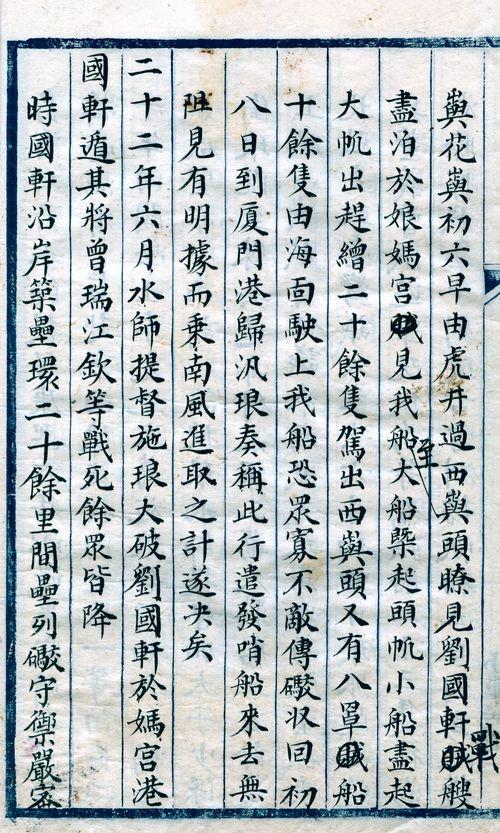 嶼花嶼初六早由虎井過西嶼頭瞭見劉國軒賊艘
戰
盡泊於娘媽宮賊見我船至大船槩起頭帆小船盡起
大帆出趕繒二十餘隻駕出西嶼頭又有八罩賊船
十餘隻由海面駛上我船恐眾寡不敵傳礮収回初
八日到厦門港歸汛琅奏稱此行遣發哨船來去無
阻見有明據而乗南風進取之計遂决矣
二十二年六月水師提督施琅大破劉國軒於媽宮港
國軒遁其將曾瑞江欽等戰死餘眾皆降
時國軒沿岸築壘環二十餘里間壘列礮守禦嚴密